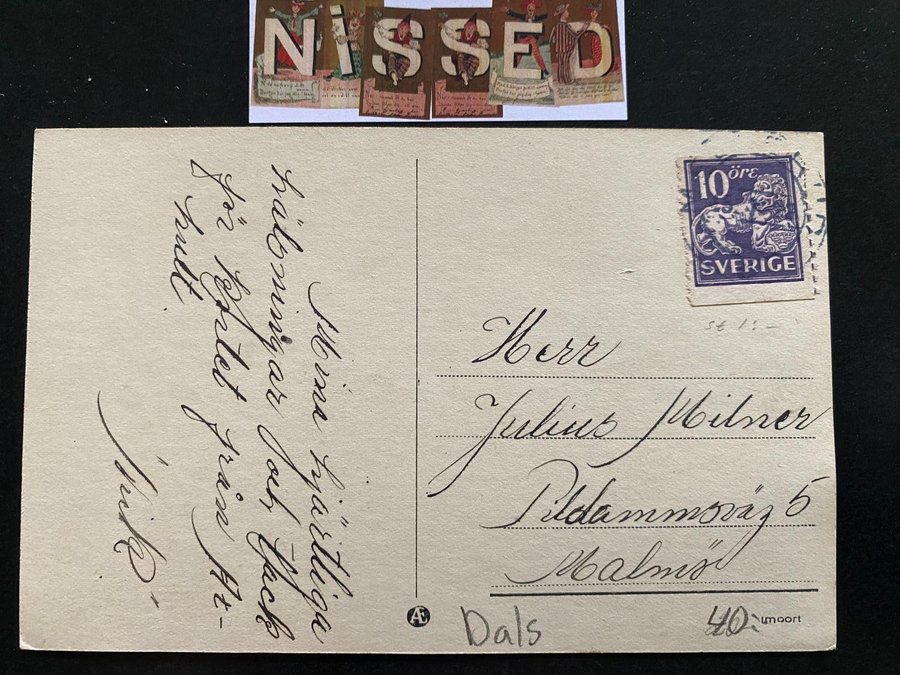 NiSSED
Mina hjärtliga
hälsningar och tack
för kortet från
hult.
10 öre
SVERIGE
st 1:-
Herr
Julius Milner
Pildammsväg 5
Malmö
Æ
Dals
40:-
Imoort